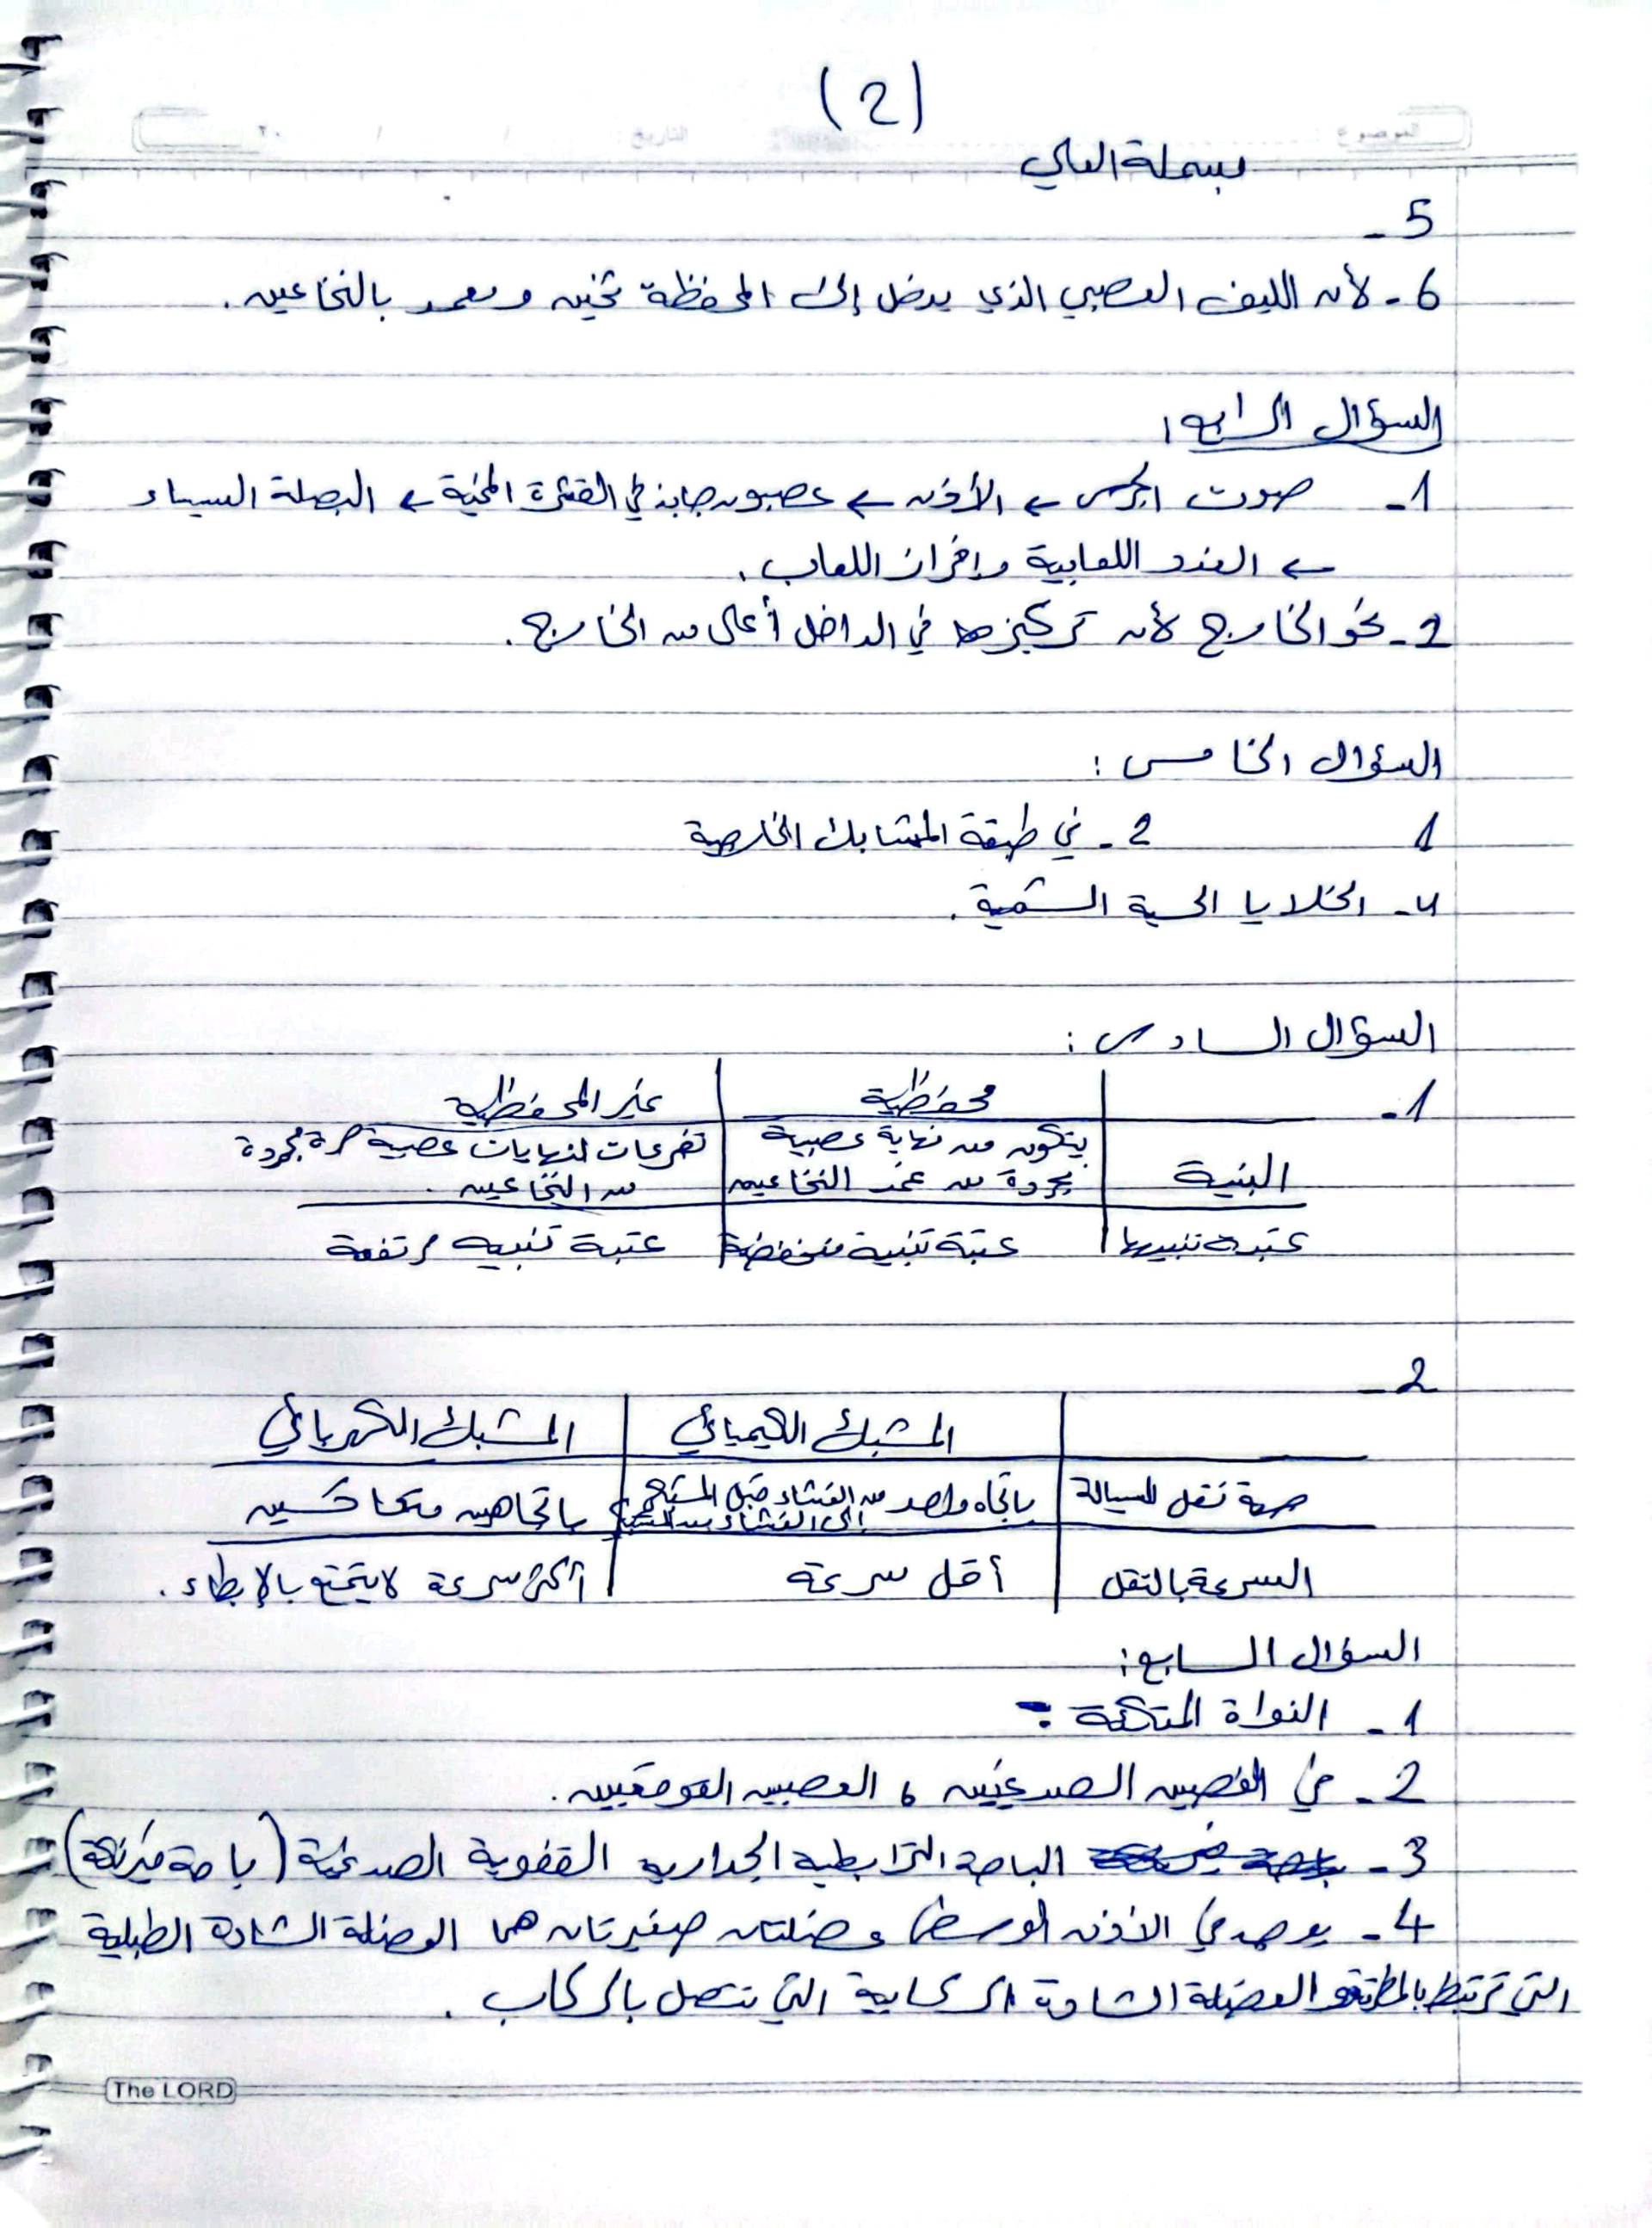 (2)
الموضوع التاريخ / / ٢٠
بسملة العلي
5-
6- لأن الليف العصبي الذي يدخل إلى المحفظة ثخين ومغمد بالنخاعين.
السؤال الرابع:
1- صوت الجرس ← الأذن ← عصبون جابذ في القشرة المخية ← البصلة السيساء
← الغدد اللعابية وإفراز اللعاب.
2- نحو الخارج لأن تركيزها في الداخل أعلى من الخارج.
السؤال الخامس:
1 2- في طبقة المشابك الخارجية
4- الخلايا الحسية الشمية.
السؤال السادس:
1- محفظية غير المحفظية
البنية يتكون من نهاية عصبية تفرعات لنهايات عصبية حرة مجردة
مجردة من غمد النخاعين من النخاعين.
عتبة تنبيهها عتبة تنبيه منخفضة عتبة تنبيه مرتفعة
2-
المشبك الكيميائي المشبك الكهربائي
جهة نقل السيالة باتجاه واحد من الغشاء قبل المشبكي باتجاهين متعاكسين
إلى الغشاء بعد المشبكي
السرعة بالنقل أقل سرعة أكثر سرعة لا يتمتع بالإبطاء.
السؤال السابع:
1- النواة المتكئة
2- في الفصين الصدغيين، العصبين القوقعيين.
3- الباحة الترابطية الجدارية القفوية الصدغية (باحة فيرنكة)
4- يوجد في الأذن الوسطى عضلتان صغيرتان هما العضلة الشادة الطبلية
التي ترتبط بالمطرقة والعضلة الشادة الركابية التي تتصل بالركاب.
The LORD